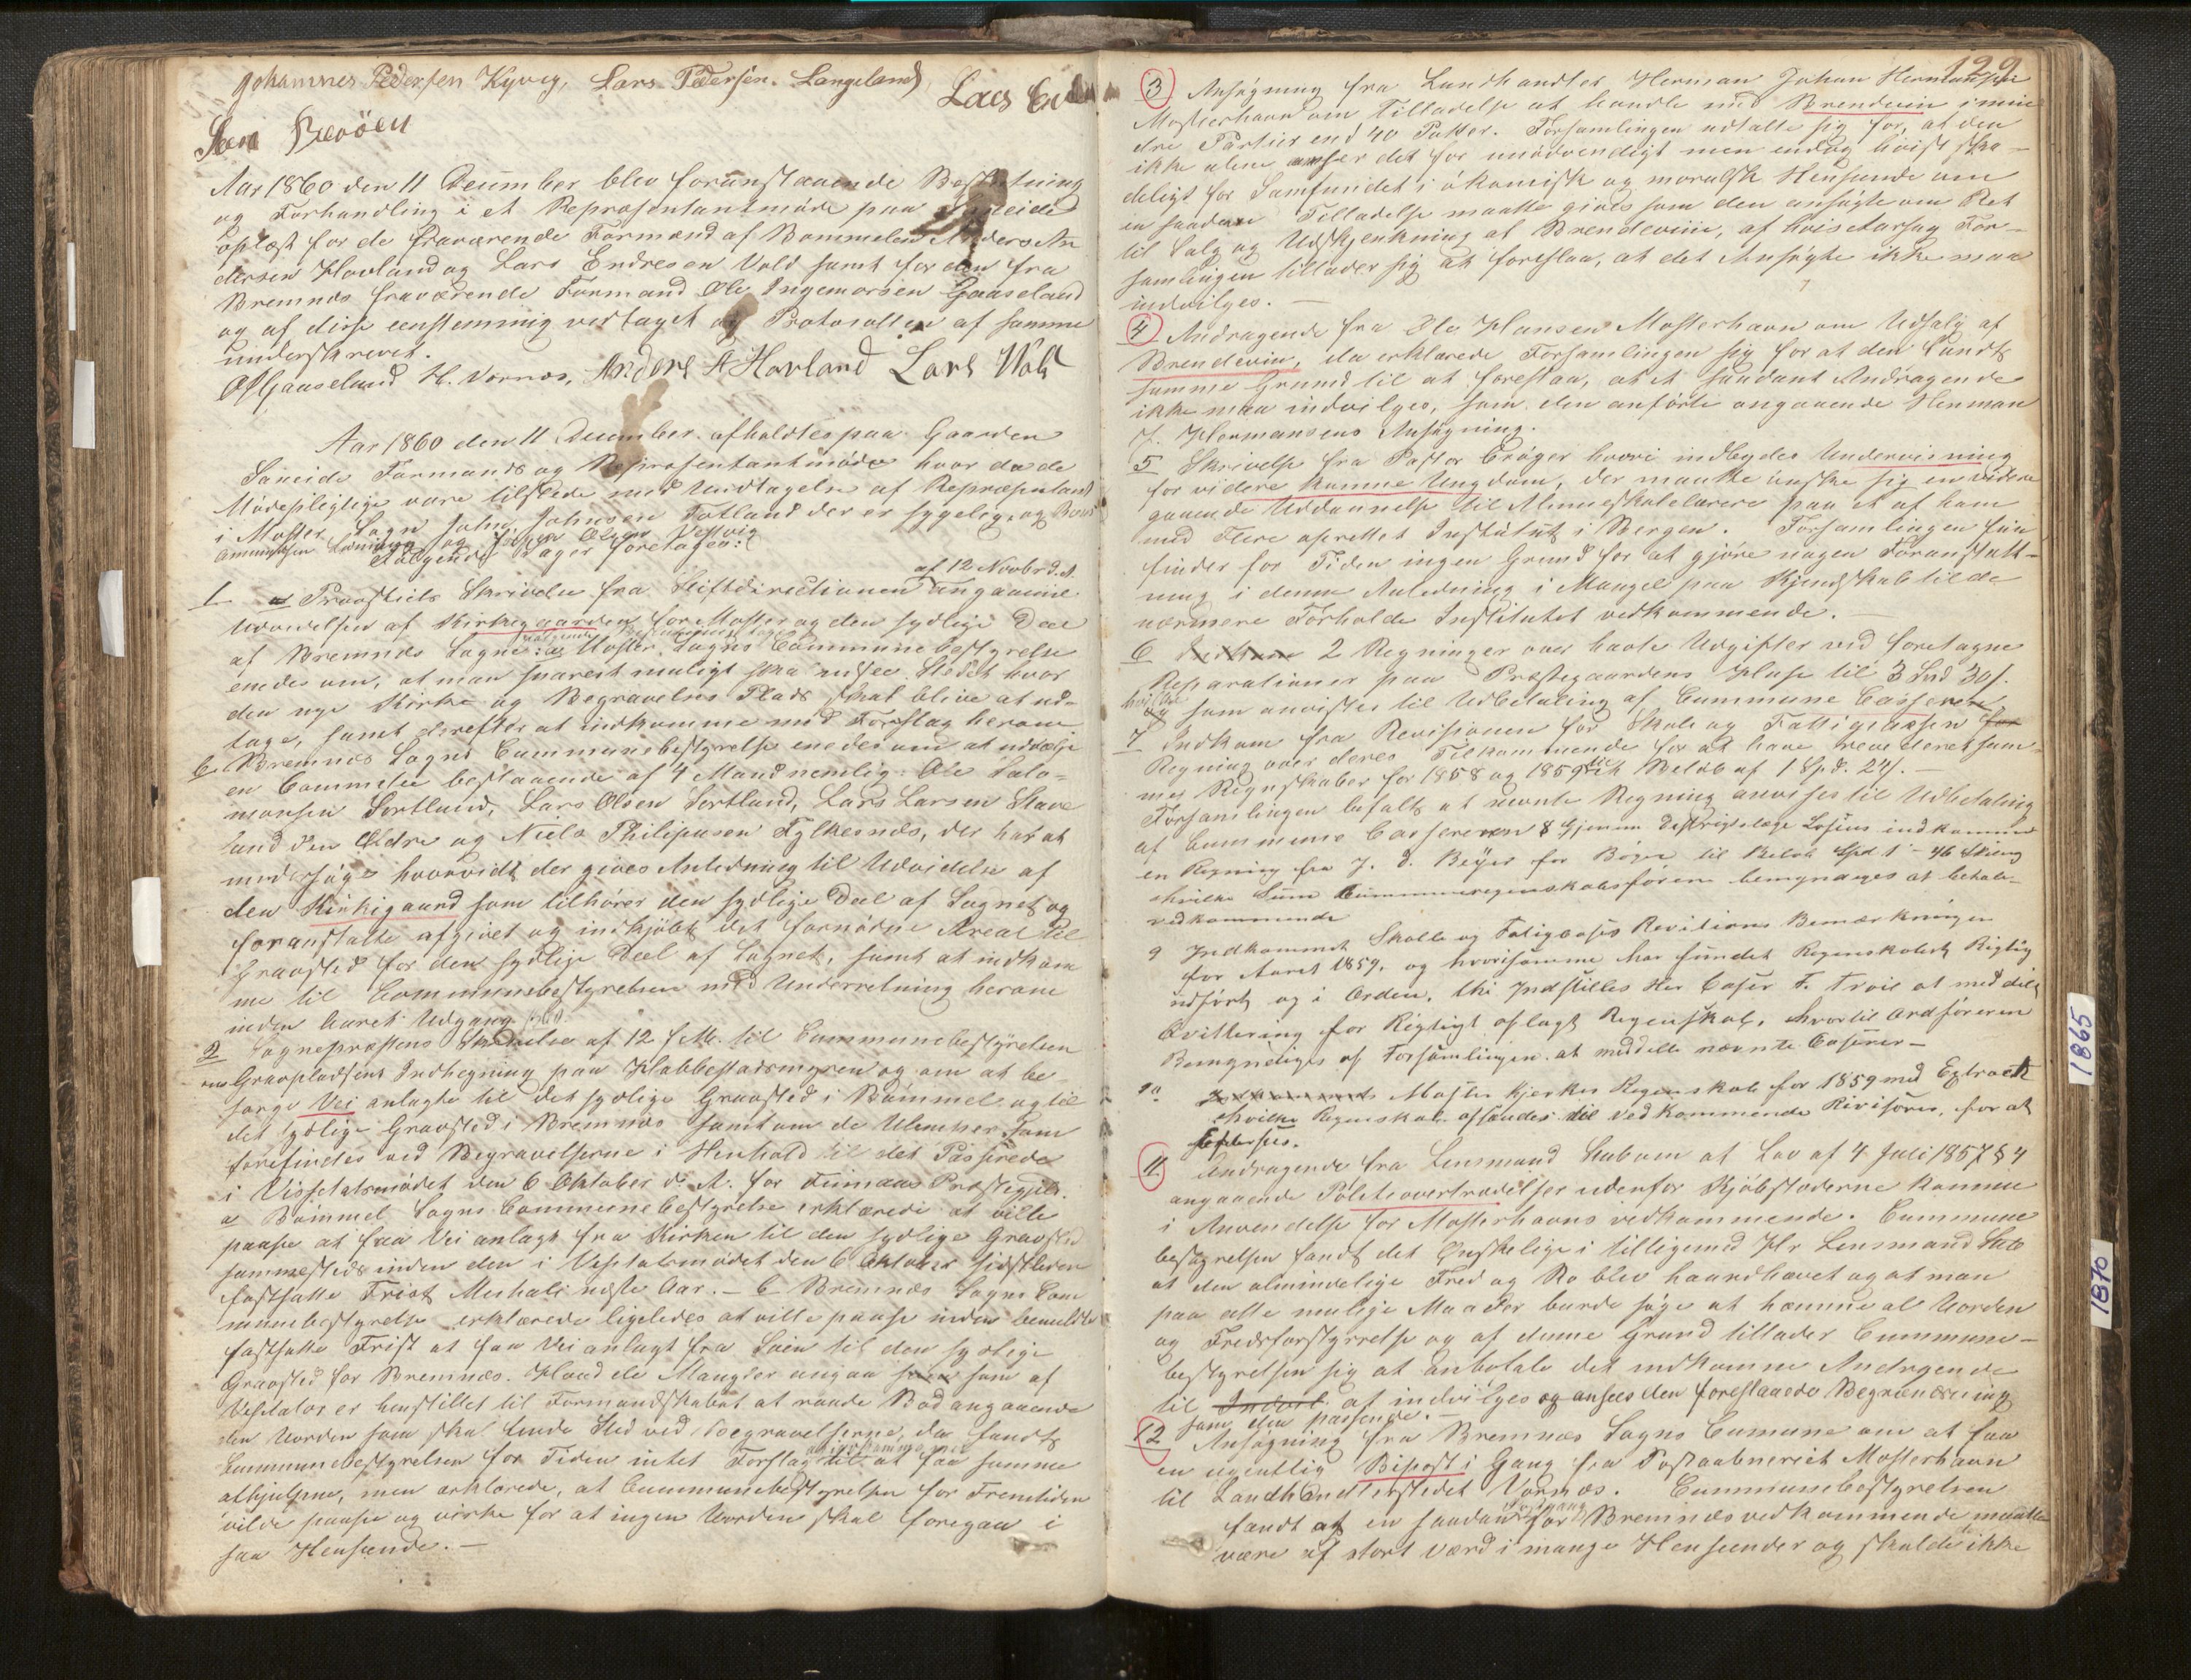 Johannes Pedersen Kyvig, Lars Pedersen Langeland Lars End
Sen Berøen
Aar 1860 den 11 December blev foranstaaende Beslutning
og Forhandling i et Repræsentantmøde paa
oplæst for de fraværende Formænd af Bommelen Anders An
dersen Hovland og Lars Endresen Vold samt for den fra
Bremnes fraværende Formand Ole Ingemorsen Gaaseland
og af disse eenstemmig vedtaget og Protocollen af samme
underskrevet.
O I Gaaseland H. Vernæs, Anders A Hovland Lars Wold
Aar 1860 den 11 December afholdtes paa Gaarden
Sæleide Formands og Repræsentantmøde hvor da de
Mødepligtige vare tilstede med Undtagelse af Repræsentant
i Moster Sogn John Johnsen Totland der er sygelig, og
og Olsen Vestvig
Følgende Sager foretages:
af 12 Novbr d. A.
1 Provstiets Skrivelse fra Stiftsdirectionen angaaende
Udvidelsen af Kirkegaarden for Moster og den sydlige Deel
af Bremnes Sogne: a Moster Sogns Communebestyrelse
enedes om, at man snarest muligt skal udsee Stedet hvor
den nye Kirke og Begravelses Plads skal blive at ud=
tage, samt derefter at indkomme med Forslag herom
b. Bremnes Sogns Communebestyrelse enedes om at udvælge
en Committee bestaaende af 4 Mand nemlig: Ole Salo=
monsen Sortland, Lars Olsen Sortland, Lars Larsen Stave
land den Ældre og Niels Philipusen Fylkesnes, der har at
undersøge hvorvidt der gives Anledning til Udvidelse af
den Kirkegaard som tilhører den sydlige Deel af Sognet og
foranstalte afgivet og indkjøbt det fornødne Areal til
Gravsted for den sydlige Deel af Sognet, samt at indkom
me til Communebestyrelsen med Underretning herom
inden Aarets Udgang 1860.
2 Sognepræstens Skrivelse af 12 f. M. til Communebestyrelsen
om Gravpladsens Indhegning paa Habbestadmyren og om at be=
sørge Vei anlagte til det sydlige Gravsted i Bømmel og til
det sydlige Gravsted i Bremnes samt om de Ulemper som
forefindes ved Begravelserne i Henhold til det Passerede
i Visitatsmødet den 6 Oktober d. A. for Finnaas Præstegjeld.
a Bømmel Sogns Communebestyrelse erklærede at ville
paasee at faa Vei anlagt fra Kirken til den sydlige Gravsted
sammesteds inden den i Visitatsmødet den 6 Oktober sidstleden
fastsatte Frist Michali næste Aar. — b Bremnes Sogns Com
munebestyrelse erklærede ligeledes at ville paasee inden bemeldte
fastsatte Frist at faa Vei anlagt fra Søen til den sydlige
Gravsted for Bremnes. Hvad de Mangler angaa som af
Visitator er henstillet til Formandskabet at raade Bod angaaende
den Uorden som skal finde Sted ved Begravelserne, da fandt
Communebestyrelsen for Tiden intet Forslag til at faa samme
afhjulpne, men erklærede, at Communebestyrelsen for Fremtiden
vilde paasee og virke for at ingen Uorden skal foregaa i
saa Henseende. —
129
3 Ansøgning fra Landhandler Herman Johan Hermansen
Mosterhavn om Tilladelse at handle med Brendevin i min
dre Partier end 40 Potter. Forsamlingen udtalte sig for, at den
ikke alene anser det for unødvendigt men endog høist ska=
deligt for Samfundet i økomisk og moralsk Henseende om
en saadan Tilladelse maatte gives som den ansøgte om Ret
til Salg og Udskjenkning af Brendeviin, af hvis Aarsag For=
samlingen tillader sig at foreslaa, at det Ansøgte ikke maa
indvilges. —
4 Andragende fra Ole Hansen Mosterhavn om Udsalg af
Brendevin, da erklærede Forsamlingen sig for at den fandt
samme Grund til at foreslaa, at et saadant Andragende
ikke maa indvilges, som den anførte angaaende Herman
J. Hermansens Ansøgning.
5 Skrivelse fra Pastor Crøger hvori indbydes Underviisning
for videre komne Ungdom, der maatte ønske sig en videre
gaaende Uddannelse til Almueskolelærere paa et af ham
med Flere oprettet Institut i Bergen. Forsamlingen
finder for Tiden ingen Grund for at gjøre nogen Foranstalt=
ning i denne Anledning i Mangel paa Kjendskab til de
nærmere Forholde Institutet vedkommende. —
6 2 Regninger over havte Udgifter ved foretagne
Reparationer paa Præstegaardens Huse til 3 Spd 30 s.
hvilke som anvistes til Udbetaling af Commune Casseren.
7 Indkom fra Revisionen for Skole og Fattigcassen
Regning over deres Tilkommende for at have revideret sam=
mes Regnskaber for 1858 og 1859 til Beløb af 1 Spd. 24 s. —
Forsamlingen besluttet at nævnte Regning anvises til Udbetaling
af Commune Casseren 8 Gjennem Distrigtslæge Losius indkommen
en Regning fra J. D. Beÿer for Bøger til Beløb Spd 1 - 46 Skiling
hvilke Sum Communeregnskabsføren bemyndiges at betale
vedkommende
9 Indkommet Skolle og Fatigcases Revisions Bemærkninger
for Aaret 1859, og hvorisamme har fundet Regenskabet Rigtig
udført og i Orden, thi Indstilles Her Caser F. Troie at meddeles
Qvittering for Rigtigt aflagt Regenskab, hvortil Ordføreren
Bemyndiges af Forsamlingen at meddelle nævnte Caserer —
10 Moster Kjerkes Regenskab for 1859 med Extract
hvilke Regenskab afsendes til vedkommende Rivisorer, for at
efterses.
11 Andragende fra Lensmand Sub om at Lov af 4 Juli 1857 § 4
angaaende Politieovertrædelser udenfor Kjøbstæderne komme
i Anvendelse for Mosterhavns vedkommende. Commune
bestyrelsen fandt det Ønskelige i tilligemed Hr Lensmand Sub
at den almindelige Fred og Ro blev haandhævet og at man
paa alle mulige Maader burde søge at hæmme al Uorden
og Fredsforstyrrelse og af denne Grund tillader Commune=
bestyrelsen sig at anbefale det indkomne Andragende
til at indvilges og ansees den foreslaaede Begrændsning
som den passende. —
12 Ansøgning fra Bremnes Sogns Comune om at faa
en ugentlig Bipost i Gang fra Postaabneriet Mosterhavn
til Landhandlerstedet Vornæs. Communebestyrelsen
fandt at en saadan Postgang for Bremnes vedkommende maatte
være af stort Værd i mange Henseender og skulde ikke
1865
1870